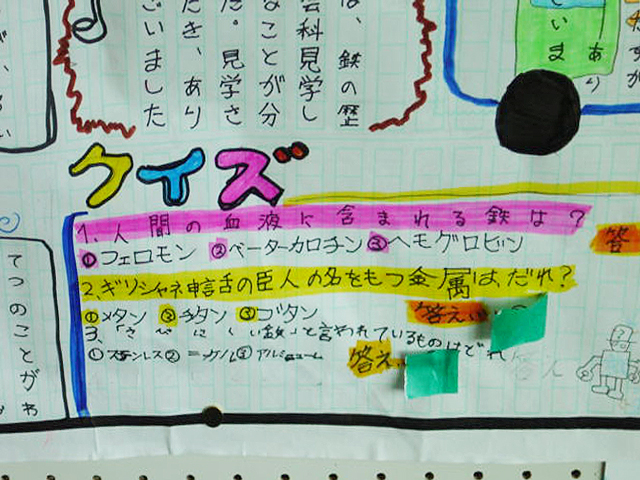 は、鉄の歴
会科見学し
なことが分
た。見学さ
だき、あり
ございました
クイズ
1.人間の血液に含まれる鉄は?
①フェロモン ②ベーターカロチン ③ヘモグロビン
答
2.ギリシャ神話の巨人の名をもつ金属は、だれ?
①メタン ②チタン ③ゴタン
答えは
3、「さびにくい鉄」と言われているものはどれ
①ステンレス ②ニッケル ③アルミニューム
答え
てつのことがわ